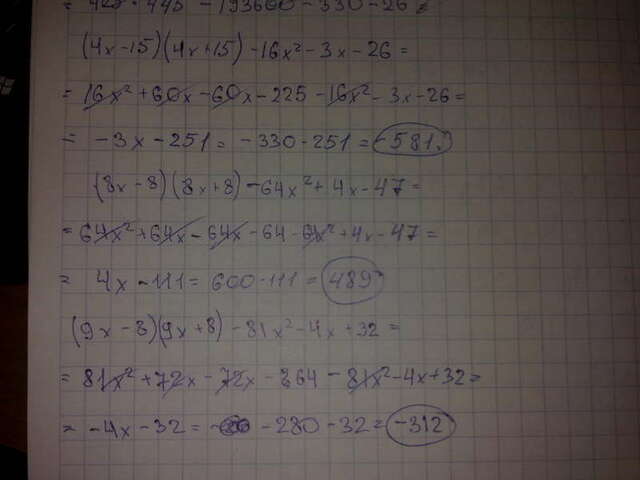 = 425 · 445 - 193600 - 330 - 26 =
(4x-15)(4x+15) -16x² - 3x - 26 =
= 16x² + 60x - 60x - 225 - 16x² - 3x - 26 =
= -3x - 251 = -330 - 251 = -581.
(8x-8)(8x+8) - 64x² + 4x - 47 =
= 64x² + 64x - 64x - 64 - 64x² + 4x - 47 =
= 4x - 111 = 600 - 111 = 489
(9x-8)(9x+8) - 81x² - 4x + 32 =
= 81x² + 72x - 72x - 64 - 81x² - 4x + 32 =
= -4x - 32 = -280 - 32 = -312